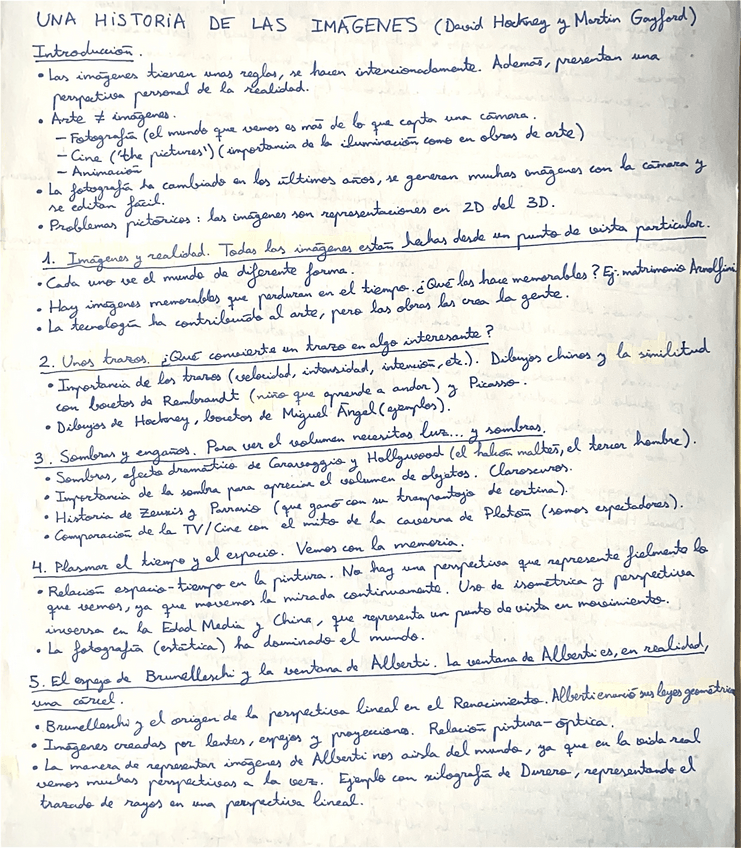 UNA HISTORIA DE LAS IMÁGENES (David Hockney y Martin Gayford)
Introducción.
• Las imágenes tienen unas reglas, se hacen intencionadamente. Además, presentan una
perspectiva personal de la realidad.
• Arte ≠ imágenes.
– Fotografía (el mundo que vemos es más de lo que capta una cámara.
– Cine ('the pictures') (importancia de la iluminación como en obras de arte)
– Animación
• La fotografía ha cambiado en los últimos años, se generan muchas imágenes con la cámara y
se editan fácil.
• Problemas pictóricos: las imágenes son representaciones en 2D del 3D.
1. Imágenes y realidad. Todas las imágenes están hechas desde un punto de vista particular.
• Cada uno ve el mundo de diferente forma.
• Hay imágenes memorables que perduran en el tiempo. ¿Qué las hace memorables? Ej. matrimonio Arnolfini
• La tecnología ha contribuido al arte, pero las obras las crea la gente.
2. Unos trazos. ¿Qué convierte un trazo en algo interesante?
• Importancia de los trazos (velocidad, intensidad, intención, etc.). Dibujos chinos y la similitud
con bocetos de Rembrandt (niño que aprende a andar) y Picasso.
• Dibujos de Hockney, bocetos de Miguel Ángel (ejemplos).
3. Sombras y engaños. Para ver el volumen necesitas luz... y sombras.
• Sombras, efecto dramático de Caravaggio y Hollywood (el halcón maltés, el tercer hombre).
• Importancia de la sombra para apreciar el volumen de objetos. Claroscuros.
• Historia de Zeuxis y Parrasio (que ganó con su trampantojo de cortina).
• Comparación de la TV/Cine con el mito de la caverna de Platón (somos espectadores).
4. Plasmar el tiempo y el espacio. Vemos con la memoria.
• Relación espacio-tiempo en la pintura. No hay una perspectiva que represente fielmente lo
que vemos, ya que movemos la mirada continuamente. Uso de isométrica y perspectiva
inversa en la Edad Media y China, que representa un punto de vista en movimiento.
• La fotografía (estática) ha dominado el mundo.
5. El espejo de Brunelleschi y la ventana de Alberti. La ventana de Alberti es, en realidad,
una cárcel.
• Brunelleschi y el origen de la perspectiva lineal en el Renacimiento. Alberti enunció sus leyes geométricas
• Imágenes creadas por lentes, espejos y proyecciones. Relación pintura-óptica.
• La manera de representar imágenes de Alberti nos aisla del mundo, ya que en la vida real
vemos muchas perspectivas a la vez. Ejemplo con xilografía de Durero, representando el
trazado de rayos en una perspectiva lineal.